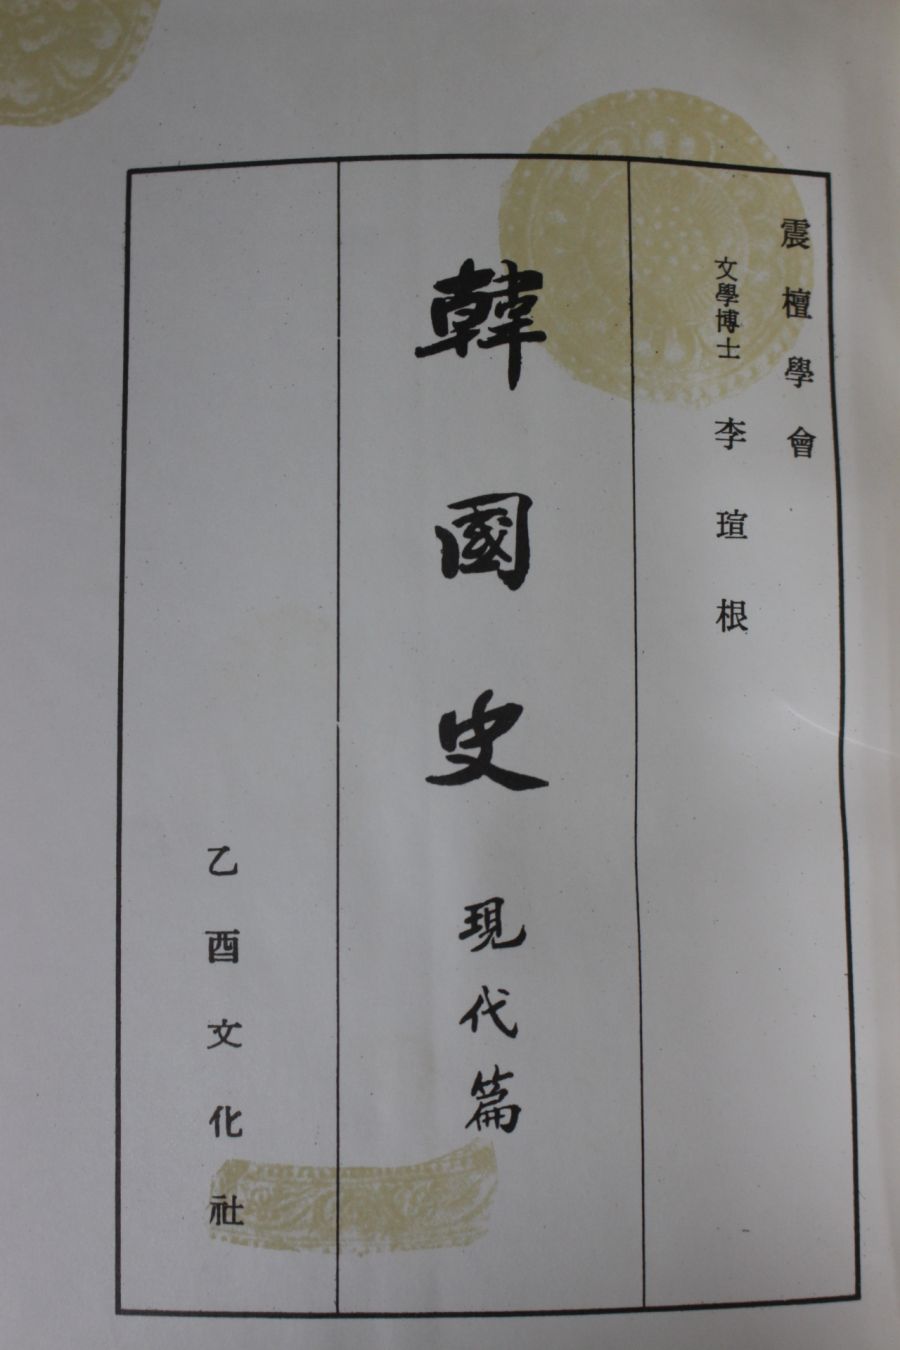 震檀學會
文學博士 李瑄根
韓國史 現代篇
乙酉文化社